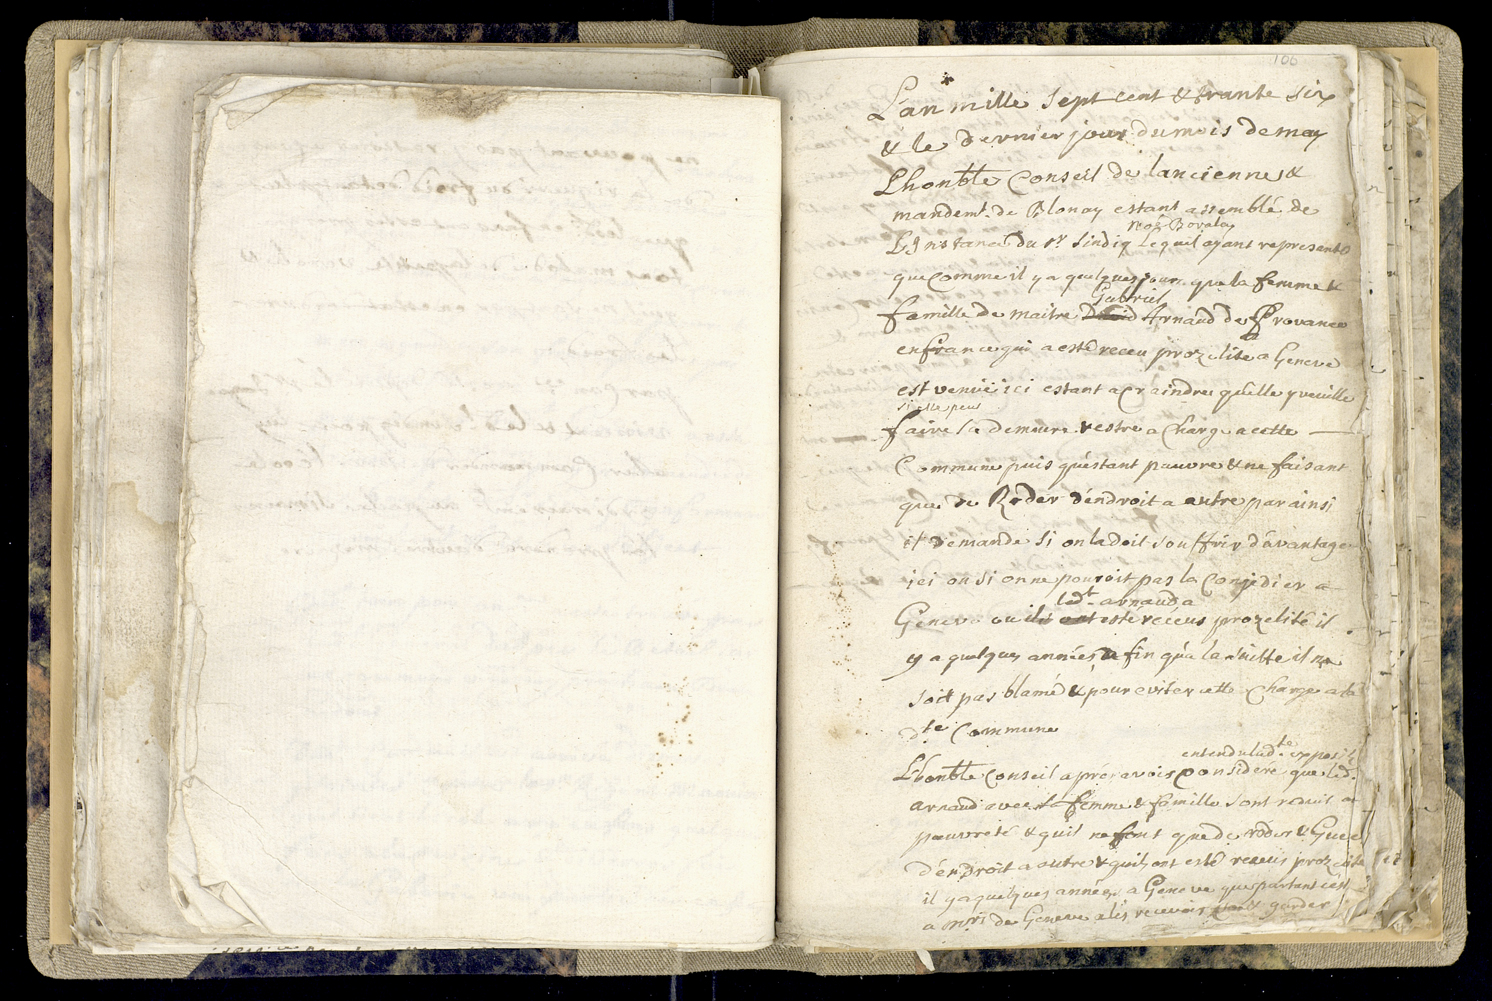 106
L'an mille sept cent & trante six
& le dernier jour du mois de may
L'honble Conseil de lancienne &
mandemt. de Blonay estant assemblé de
L'Instance du sr. Sindiq Lequel ayant representé
que comme il y a quelques jours que la femme &
Gabriel
famille de maitre David Arnaud de Provance
en france qui a esté receu prozelite a Geneve
est venüe ici estant a craindre quelle y veuille
si elle peus
faire sa demeure & estre a charge a cette
Commune puis qu'estant pauvre & ne faisant
que de Roder d'endroit a autre par ainsi
il demande si on la doit souffrir d'avantage
ici ou si on ne pouroit pas la Conjedier a
ledt. arnaud a
Geneve ou ils ont esté receus prozelite il
y a quelques années afin qu'a la suitte il ne
soit pas blamé & pour eviter cette charge a la
dte Commune
entendu ladte.
L'honble Conseil apres avoir considéré que led.
arnaud avec sa femme & famille sont reduit a
pauvreté & quil ne font que de roder &
d'endroit a autre & quils ont esté receus prozelite
il y a quelques années a Geneve que partant c'est
a mrs de Geneve a les recevoir & garder